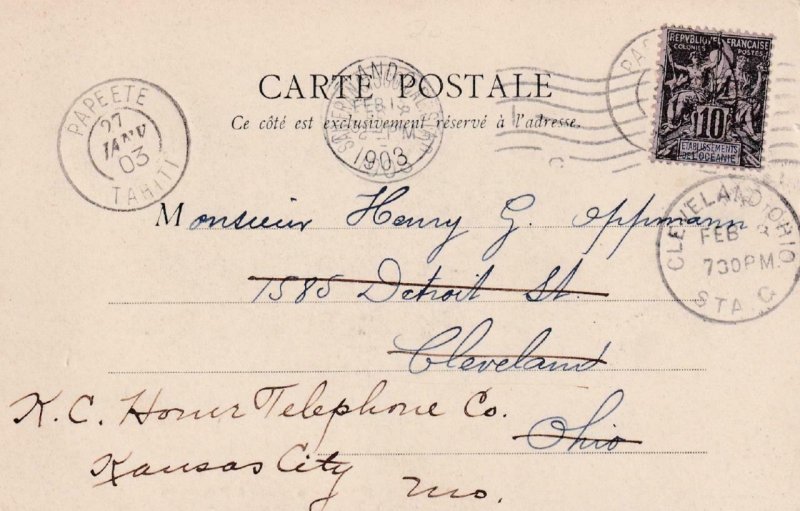 CARTE POSTALE
Ce côté est exclusivement réservé à l'adresse.
PAPEETE
27
JANV
03
TAHITI
FEB
1903
REPVBLIQVE FRANÇAISE
COLONIES POSTES
10
ETABLISSEMENTS
DE L'OCEANIE
CLEVELAND, OHIO
FEB 8
730PM
STA C
Monsieur Henry G. Oppmann
1585 Detroit St.
Cleveland
Ohio
K. C. Home Telephone Co.
Kansas City
Mo.